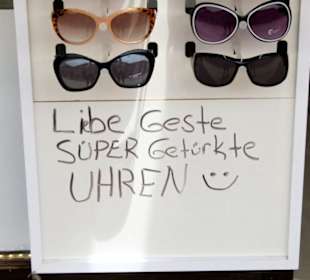 Libe Geste
SÜPER Getürkte
UHREN